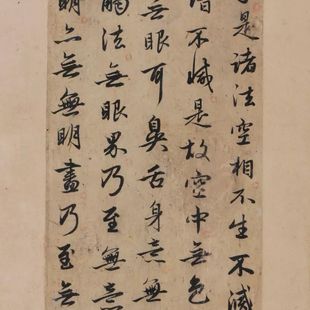 是諸法空相不生不滅
不減是故空中無色
無眼耳鼻舌身意無
觸法無眼界乃至無意
明亦無無明盡乃至無